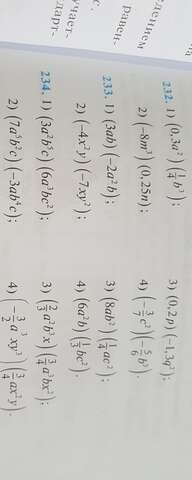 дением
равен-
с.
учает-
дарт-
232. 1) (0,3a²)(1/4 b³); 3) (0,2p)(−1,3q²);
2) (−8m³)(0,25n); 4) (−3/7 c²)(−5/6 b³).
233. 1) (3ab)(−2a²b); 3) (8ab²)(1/4 ac²);
2) (−4x²y)(−7xy²); 4) (6a²b)(1/3 bc²).
234. 1) (3a²b⁵c)(6a³bc²); 3) (2/3 a²b³x)(3/4 a³bx²);
2) (7a⁵b²c)(−3ab⁴c); 4) (−3/2 a³xy³)(3/4 ax²y).